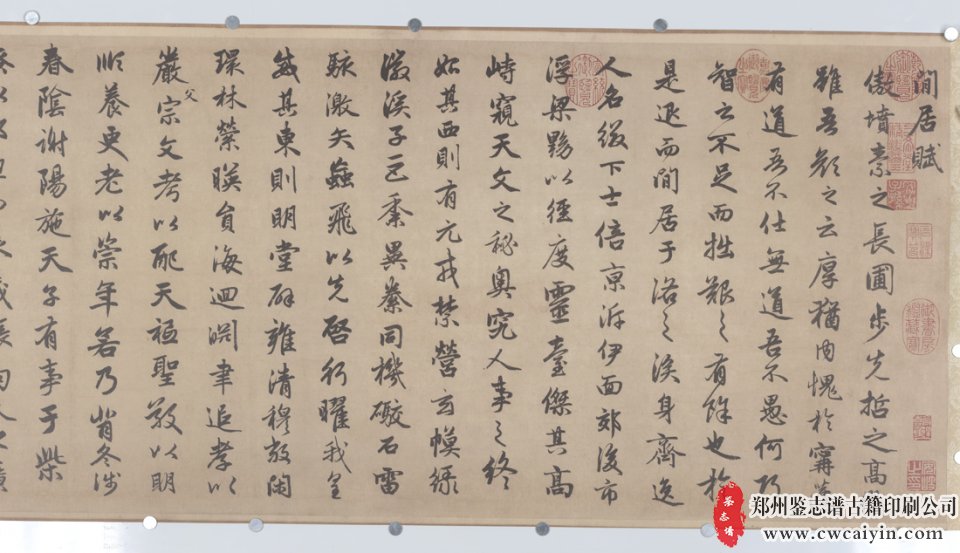 閒居賦
傲墳素之長圃步先哲之高
雖吾顏之云厚猶內愧於甯
有道吾不仕無道吾不愚何巧
智之不足而拙艱之有餘也於
是退而閒居于洛之涘身齊逸
人名綴下士倍京泝伊面郊後市
浮梁黝以徑度靈臺傑其高
峙窺天文之秘奧究人事之終
始其西則有元戎禁營玄幙綠
徽溪子巨黍異絭同機礮石雷
駭激矢蝱飛以先啓行曜我皇
威其東則明堂辟雍清穆敞閑
環林縈暎員海迴淵聿追孝以
嚴父宗文考以配天祗聖敬以明
順養更老以崇年若乃背冬涉
春陰謝陽施天子有事于柴
鉴志谱
郑州鉴志谱古籍印刷公司
www.cwcaiyin.com